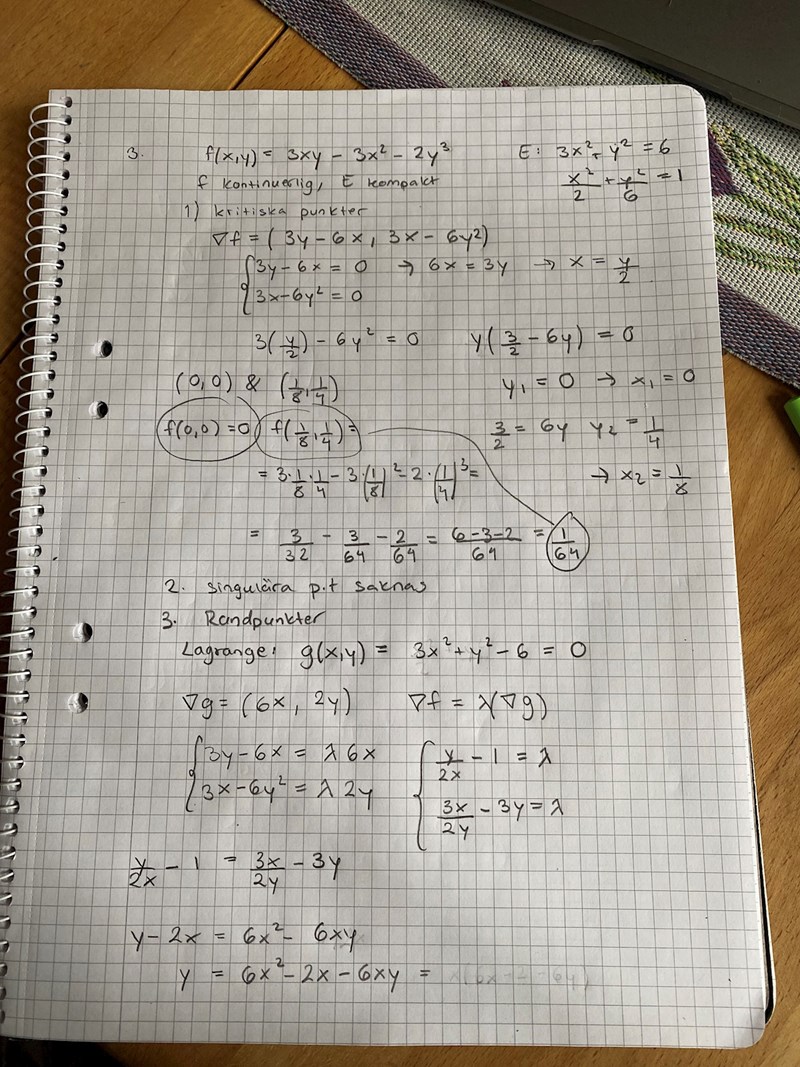 3. f(x,y) = 3xy - 3x² - 2y³ E: 3x² + y² = 6
f kontinuerlig, E kompakt x²/2 + y²/6 = 1
1) kritiska punkter
∇f = (3y - 6x, 3x - 6y²)
{3y - 6x = 0 → 6x = 3y → x = y/2
{3x - 6y² = 0
3(y/2) - 6y² = 0 y(3/2 - 6y) = 0
(0,0) & (1/8, 1/4) y₁ = 0 → x₁ = 0
f(0,0) = 0 f(1/8, 1/4) = 3/2 = 6y y₂ = 1/4
= 3·1/8·1/4 - 3·(1/8)² - 2·(1/4)³ = → x₂ = 1/8
= 3/32 - 3/64 - 2/64 = (6-3-2)/64 = 1/64
2. singulära p.t saknas
3. Randpunkter
Lagrange: g(x,y) = 3x² + y² - 6 = 0
∇g = (6x, 2y) ∇f = λ(∇g)
{3y - 6x = λ 6x {y/2x - 1 = λ
{3x - 6y² = λ 2y {3x/2y - 3y = λ
y/2x - 1 = 3x/2y - 3y
y - 2x = 6x² - 6xy
y = 6x² - 2x - 6xy =